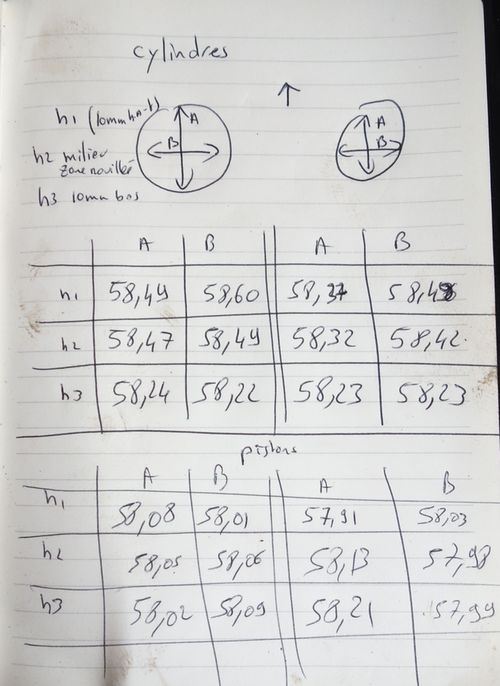 cylindres
h1 (10mm haut) A A
B B
h2 milieu
zone rouillé
h3 10mm bas
A B A B
h1 58,49 58,60 58,37 58,48
h2 58,47 58,49 58,32 58,42
h3 58,24 58,22 58,23 58,23
pistons
A B A B
h1 58,08 58,01 57,91 58,03
h2 58,05 58,06 58,13 57,98
h3 58,02 58,09 58,21 57,99